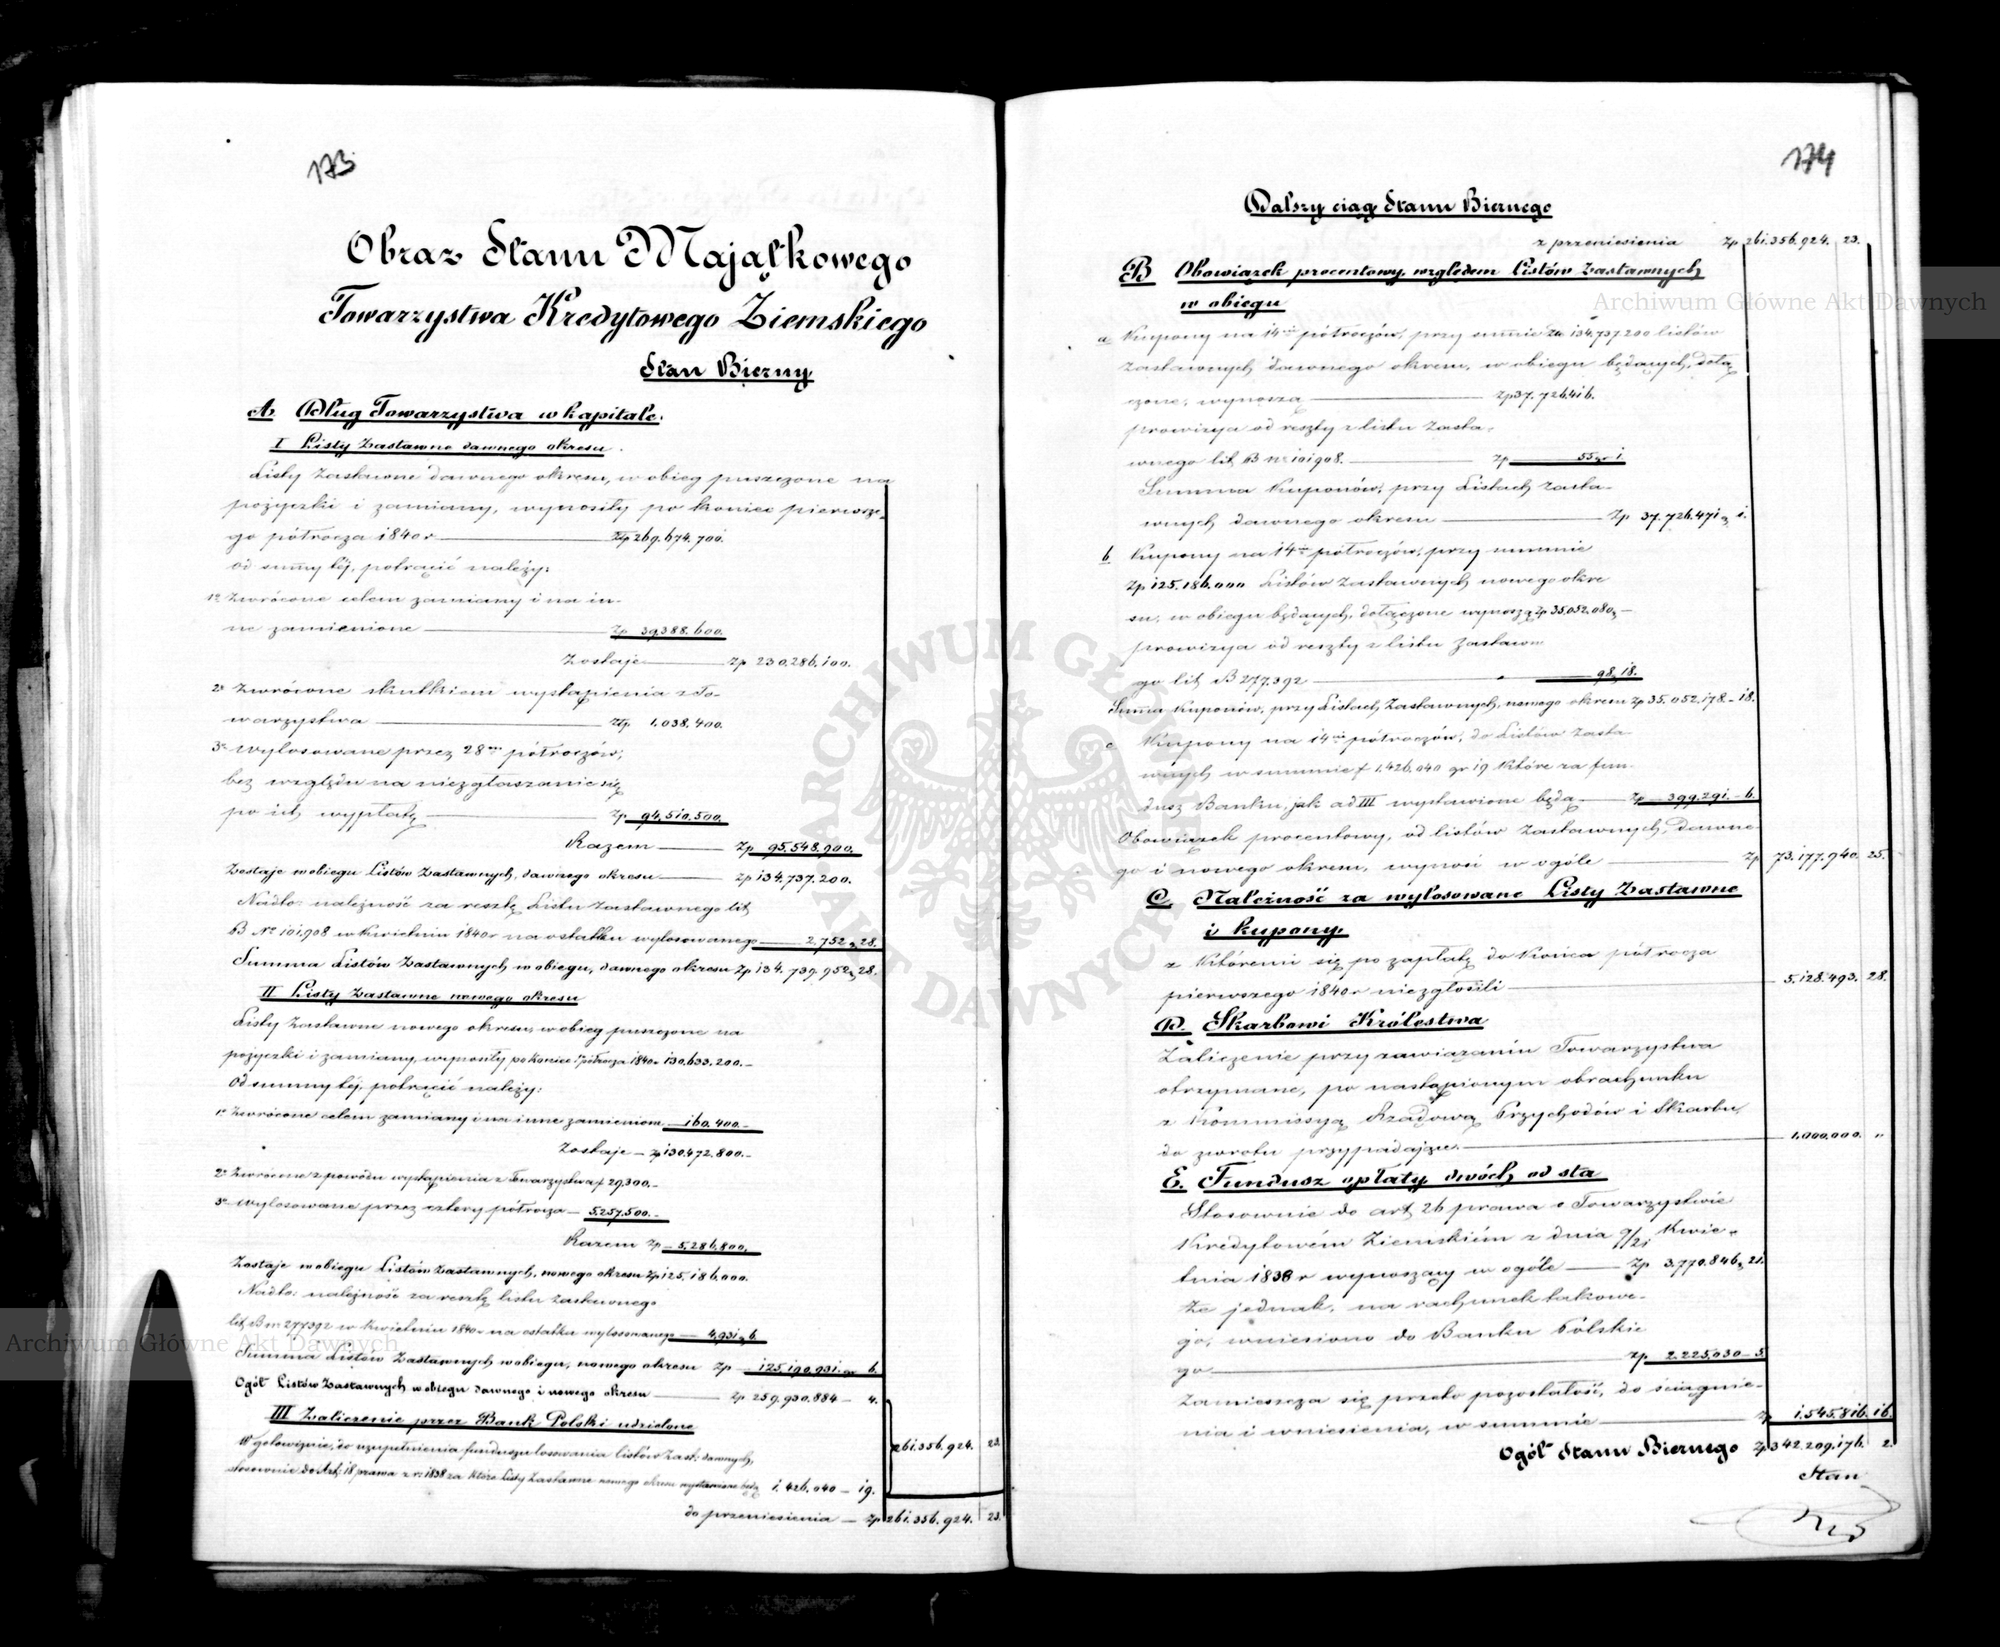 173
Obraz Stanu Majątkowego
Towarzystwa Kredytowego Ziemskiego
Stan Bierny
A. Dług Towarzystwa w kapitale.
I Listy Zastawne dawnego okresu.
Listy Zastawne dawnego okresu, w obieg puszczone na
pożyczki i zamiany, wynosiły po koniec pierwsze-
go półrocza 1840 r Zp 269.674.700.
od summy téj, potrącić należy:
1o Zwrócone celem zamiany i na in-
ne zamienione Zp 39.388.600.
Zostaje Zp 230.286.100.
2o Zwrócone skutkiem wystąpienia z To-
warzystwa Zp 1.038.400.
3o Wylosowane przez 28em półroczów,
bez względu na niezgłaszanie się
po ich wypłatę Zp 94.510.500.
Razem Zp 95.548.900.
Zostaje w obiegu Listów Zastawnych, dawnego okresu Zp 134.737.200.
Nadto: należność za resztę Listu Zastawnego lit
B No 101.908 w Kwietniu 1840 r na ostatku wylosowanego 2.752 „ 28.
Summa Listów Zastawnych w obiegu, dawnego okresu Zp 134.739.952 „ 28.
II Listy Zastawne nowego okresu
Listy Zastawne nowego okresu, w obieg puszczone na
pożyczki i zamiany, wynosiły po koniec 1o półrocza 1840 r 130.633.200.–
Od summy téj, potrącić należy:
1o Zwrócone celem zamiany i na inne zamienione 160.400.–
Zostaje – Zp 130.472.800.–
2o Zwrócone z powodu wystąpienia z Towarzystwa f 29.300.–
3o Wylosowane przez cztery półrocza – 5.257.500.–
Razem Zp – 5.286.800.
Zostaje w obiegu Listów Zastawnych, nowego okresu Zp 125.186.000.
Nadto: należność za resztę listu Zastawnego
lit. B nr 277392 w Kwietniu 1840 r na ostatku wylosowanego – 4.931 „ 6.
Summa Listów Zastawnych w obiegu, nowego okresu Zp – 125.190.931. gr 6.
Ogół Listów Zastawnych w obiegu dawnego i nowego okresu Zp 259.930.884 – 4.
III Zaliczenie przez Bank Polski udzielone
W gotowiźnie, do uzupełnienia funduszu losowania listów Zast: dawnych, 261.356.924. 23.
stosownie do Art: 18 prawa z r: 1838 za które Listy Zastawne nowego okresu wystawione będą 1.426.040 – 19.
do przeniesienia – Zp 261.356.924. 23.
174
Dalszy ciąg Stanu Biernego
z przeniesienia Zp 261.356.924. 23.
B Obowiązek procentowy, względem Listów Zastawnych
w obiegu
a Kupony na 14cie półroczów, przy summie Zp 134.737.200 listów
Zastawnych dawnego okresu, w obiegu będących, dołą
czone, wynoszą Zp 37.726.416.
prowizya od reszty z listu Zasta-
wnego lit B nr 101908. Zp 55 gr 1
Summa Kuponów, przy Listach Zasta-
wnych dawnego okresu Zp 37.726.471 „ 1.
b Kupony na 14cie półroczów, przy summie
Zp 125.186.000 Listów Zastawnych nowego okre
su, w obiegu będących, dołączone wynoszą Zp 35.052.080 „ –
prowizya od reszty z listu Zastawne
go lit B 277.392 98.18.
Summa Kuponów, przy Listach Zastawnych, nowego okresu Zp 35.052.178 – 18.
c Kupony na 14cie półroczów, do Listów Zasta-
wnych w summie f 1.426.040 gr 19 które za fun-
dusz Banku, jak ad III wystawione będą – Zp 399.291 – 6.
Obowiązek procentowy, od listów Zastawnych, dawne
go i nowego okresu, wynosi w ogóle Zp 73.177.940. 25.
C. Należność za wylosowane Listy Zastawne
i kupony,
z któremi się po zapłatę do końca półrocza
pierwszego 1840 r niezgłosili 5.128.493. 28.
D. Skarbowi Królestwa
Zaliczenie przy zawiązaniu Towarzystwa
otrzymane, po nastąpionym obrachunku
z Kommissyą Rządową Przychodów i Skarbu,
do zwrotu przypadające. 1.000.000. „
E. Fundusz opłaty dwóch od sta
Stosownie do art, 26 prawa o Towarzystwie
Kredytowém Ziemskiém z dnia 9/21 Kwie-
tnia 1838 r wynoszący w ogóle Zp 3.770.846 „ 21.
Że jednak, na rachunek takowe-
go, wniesiono do Banku Polskie
go Zp 2.225.030 – 5.
Zamieszcza się przeto pozostałość, do ściągnie-
nia i wniesienia, w summie Zp 1.545.816. 16.
Ogół Stanu Biernego Zp 342.209.176. 2.
Stan
Archiwum Główne Akt Dawnych
Archiwum Główne Akt Dawnych
ARCHIWUM GŁÓWNE AKT DAWNYCH